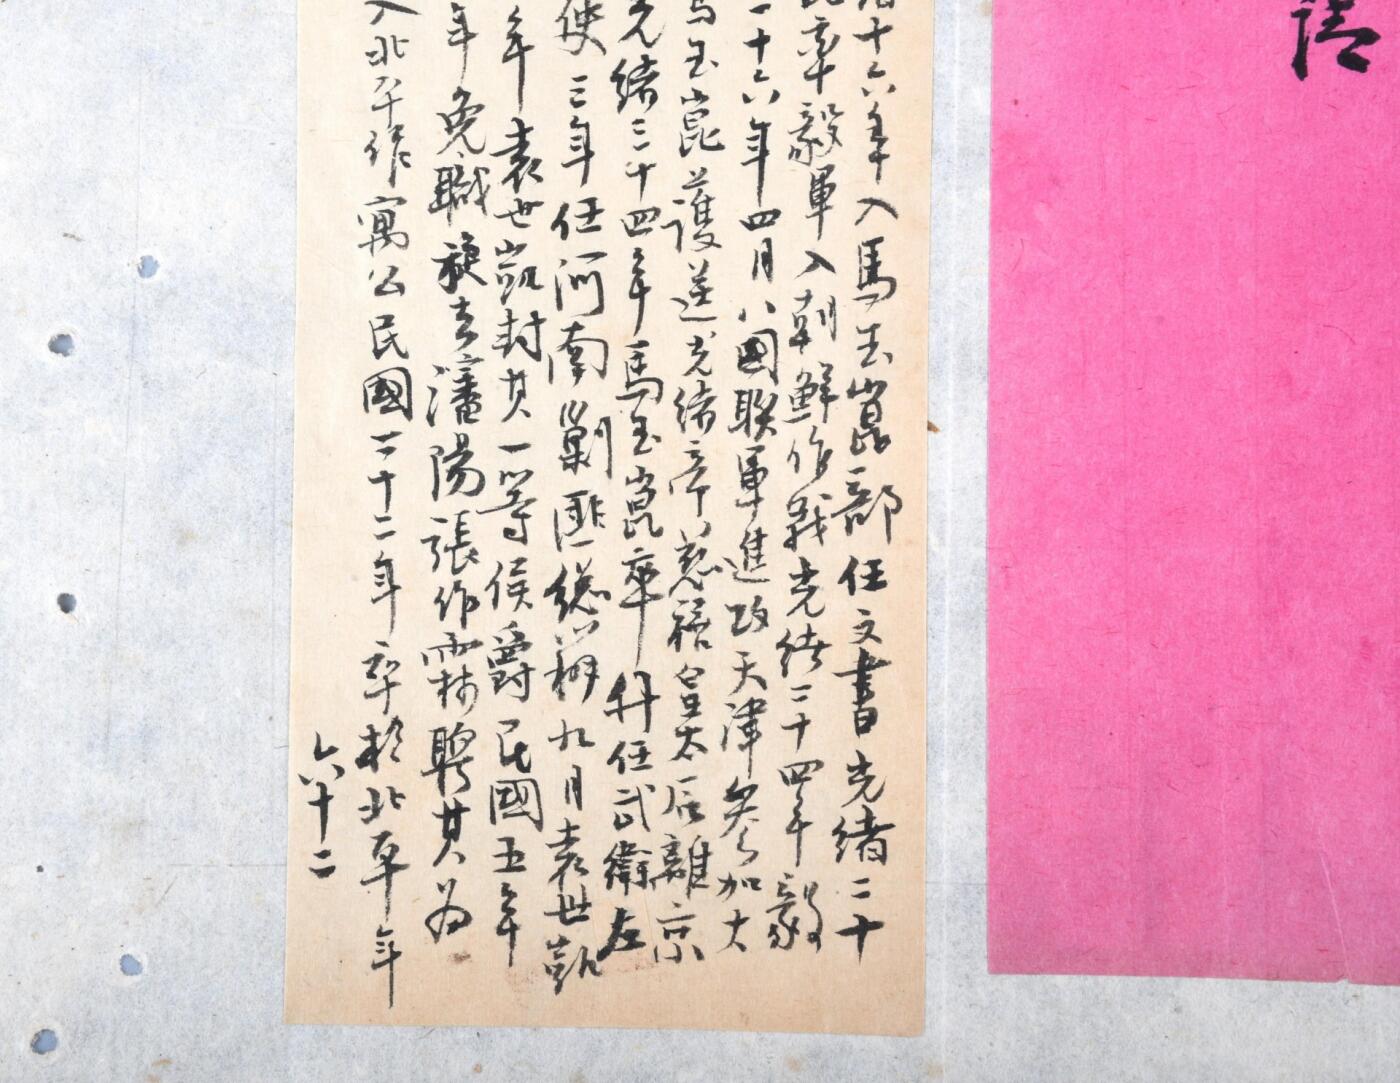 請
十六年入馬玉崑部任文書光緒二十
率毅軍入朝鮮作戰光緒二十四年毅
二十六年四月八國聯軍進攻天津參加大
馬玉崑護送光緒帝慈禧皇太后離京
光緒三十四年馬玉崑卒升任武衛左
使三年任河南剿匪總辦九月袁世凱
年袁世凱封其一等侯爵民國五年
年免職旋去瀋陽張作霖聘其為
入北平作寓公民國二十二年卒於北平年
六十二